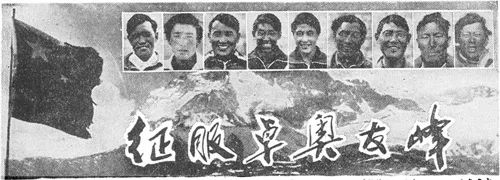 征服卓奥友峰